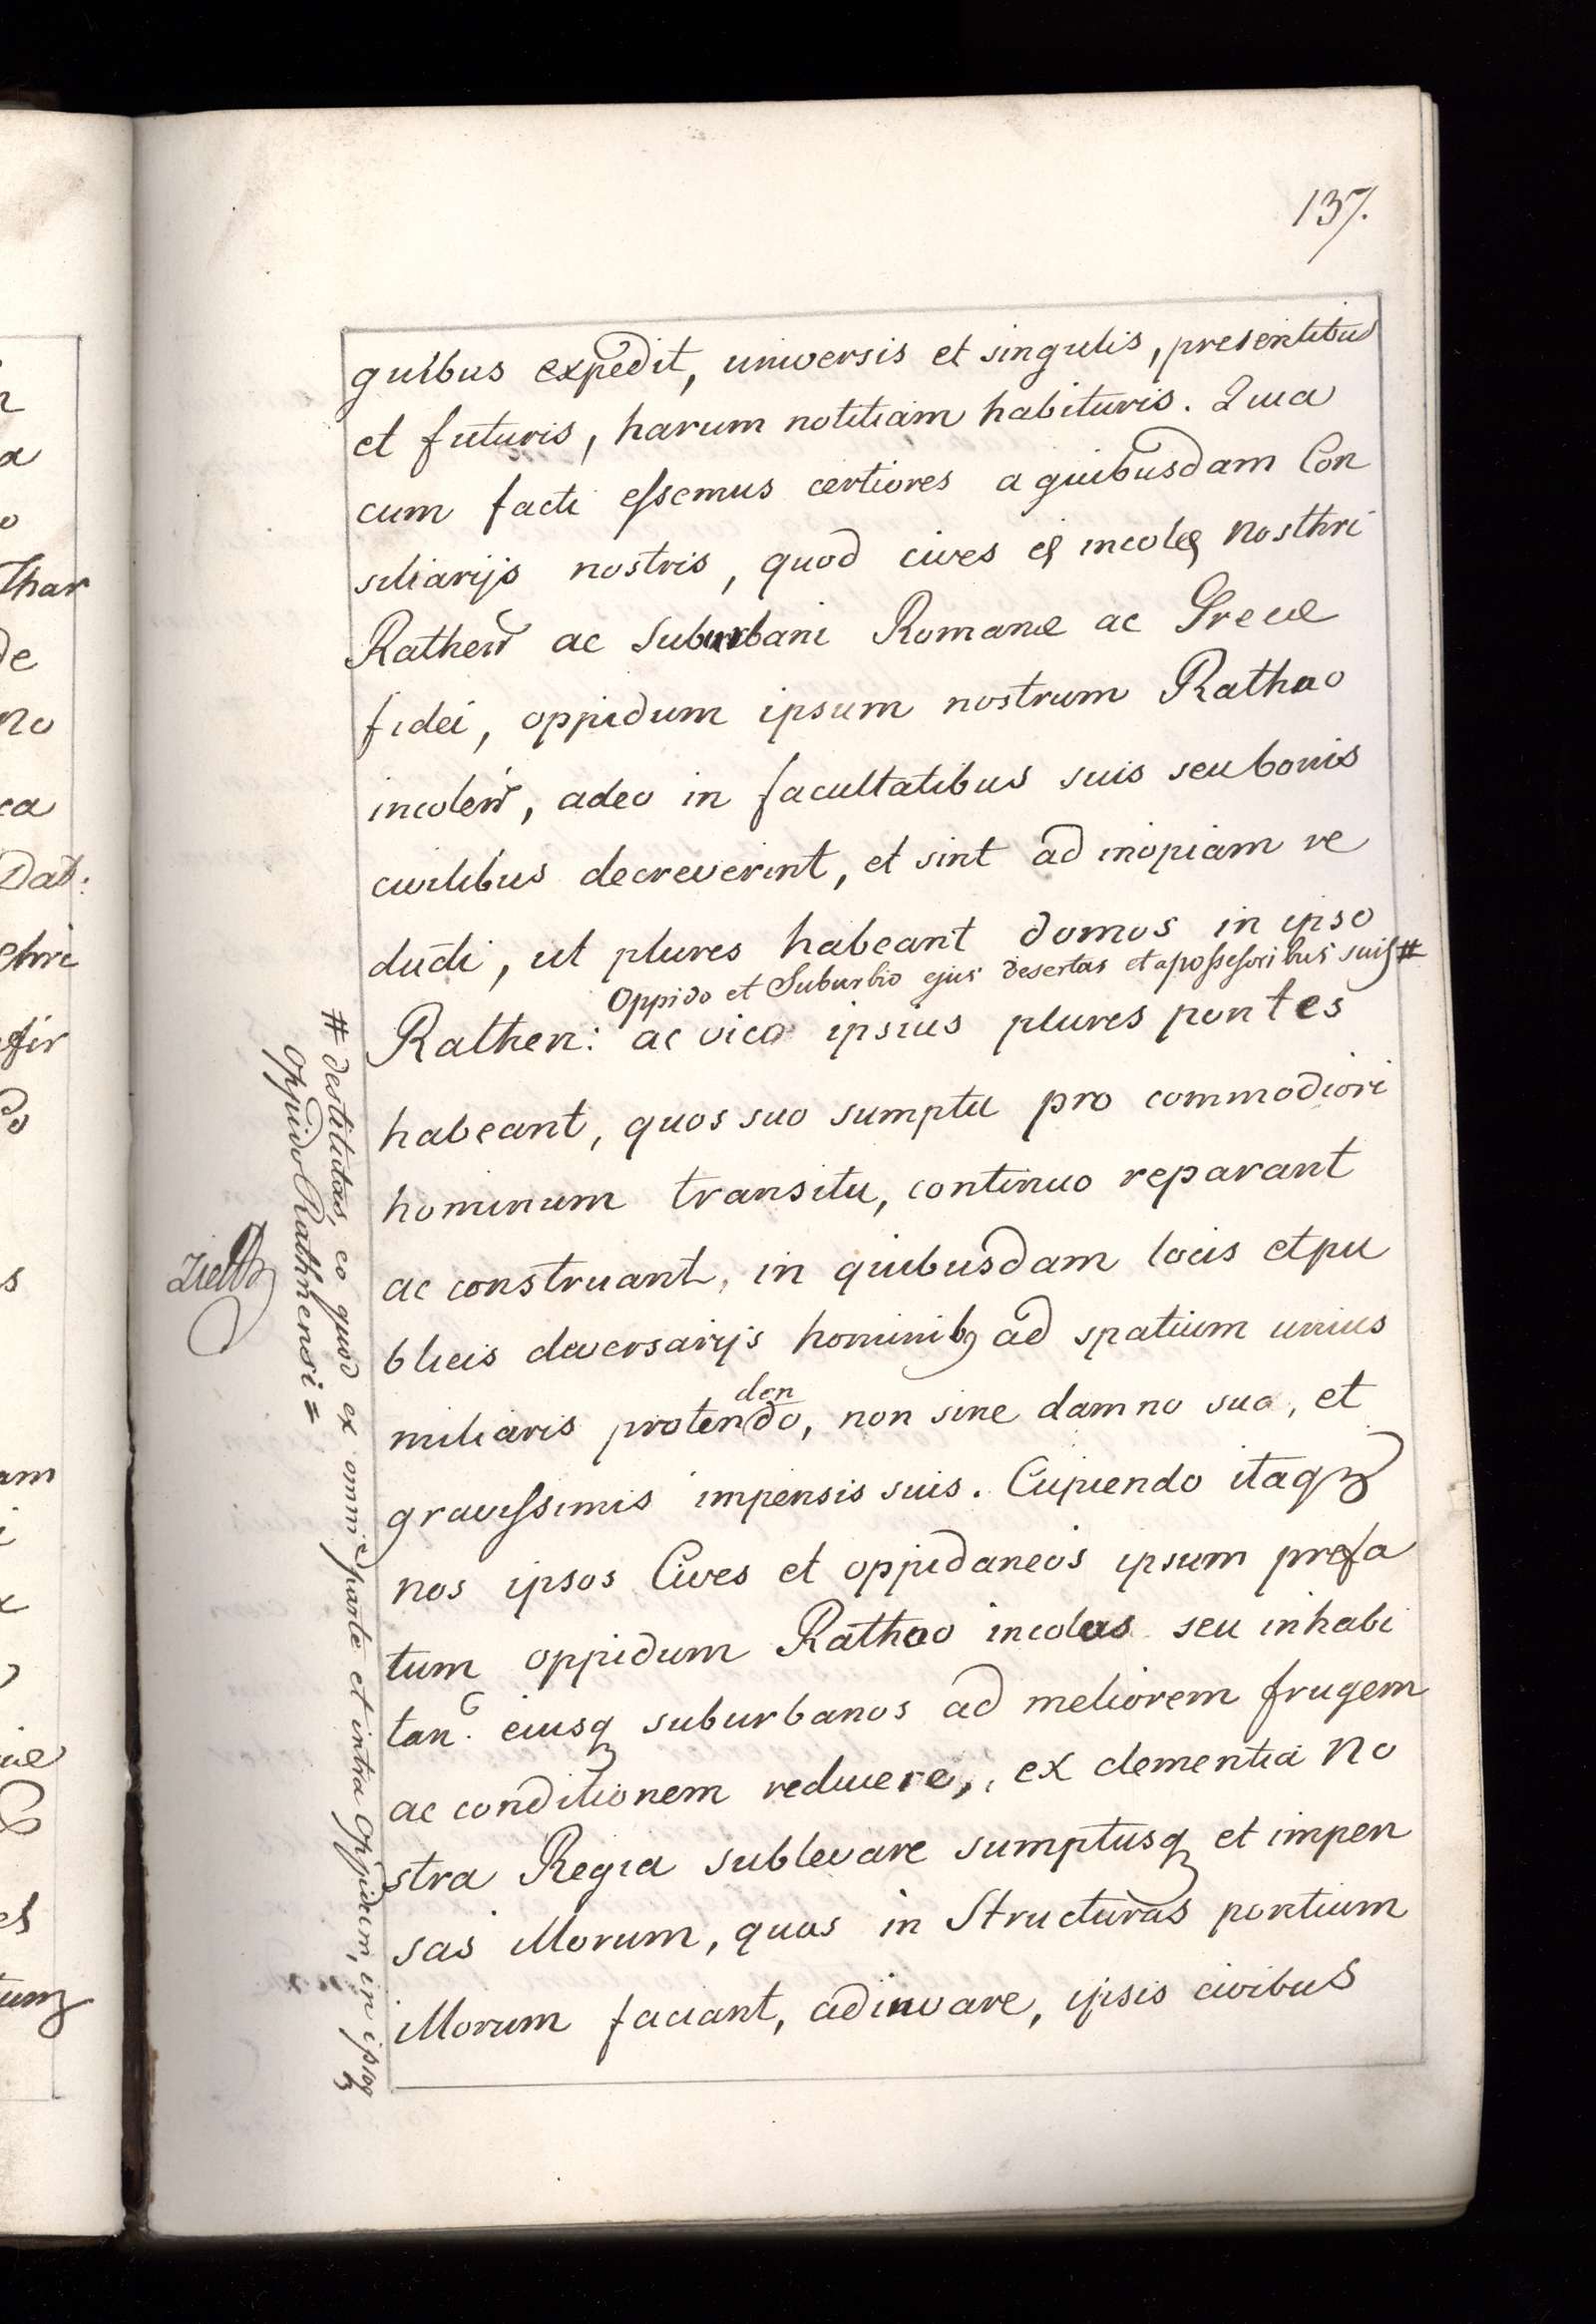 137.
quibus expedit, universis et singulis, presentibus
et futuris, harum notitiam habituris. Quia
cum facti essemus certiores a quibusdam Con
siliarijs nostris, quod cives et incole nosthri
Rathen̄ ac Suburbani Romanæ ac Grecæ
fidei, oppidum ipsum nostrum Rathno
incolen̄, adeo in facultatibus suis seu bonis
civilibus decreverint, et sint ad inopiam re
dudi, ut plures habeant domos in ipso
Oppido et Suburbio ejus desertas et a possessoribus suis #
Rathen: ac vico ipsius plures pontes
habeant, quos suo sumptu pro commodiori
hominum transitu, continuo reparant
ac construant, in quibusdam locis et pu
blicis diversarijs hominibꝫ ad spatium unius
den
miliaris protendo, non sine damno suo, et
gravissimis impensis suis. Cupiendo itaqꝫ
nos ipsos Cives et oppidaneos ipsum prefa
tum oppidum Rathno incolas seu inhabi
tan. eiusqꝫ suburbanos ad meliorem frugem
ac conditionem reducere, ex clementia no
stra Regia sublevare sumptusqꝫ et impen
sas illorum, quas in Structuras pontium
illorum faciant, adiuvare, ipsis civibus
# destitutas, eo quod ex omni parte et intra Oppidum, in ipsoqꝫ
Oppido Rathnensi =